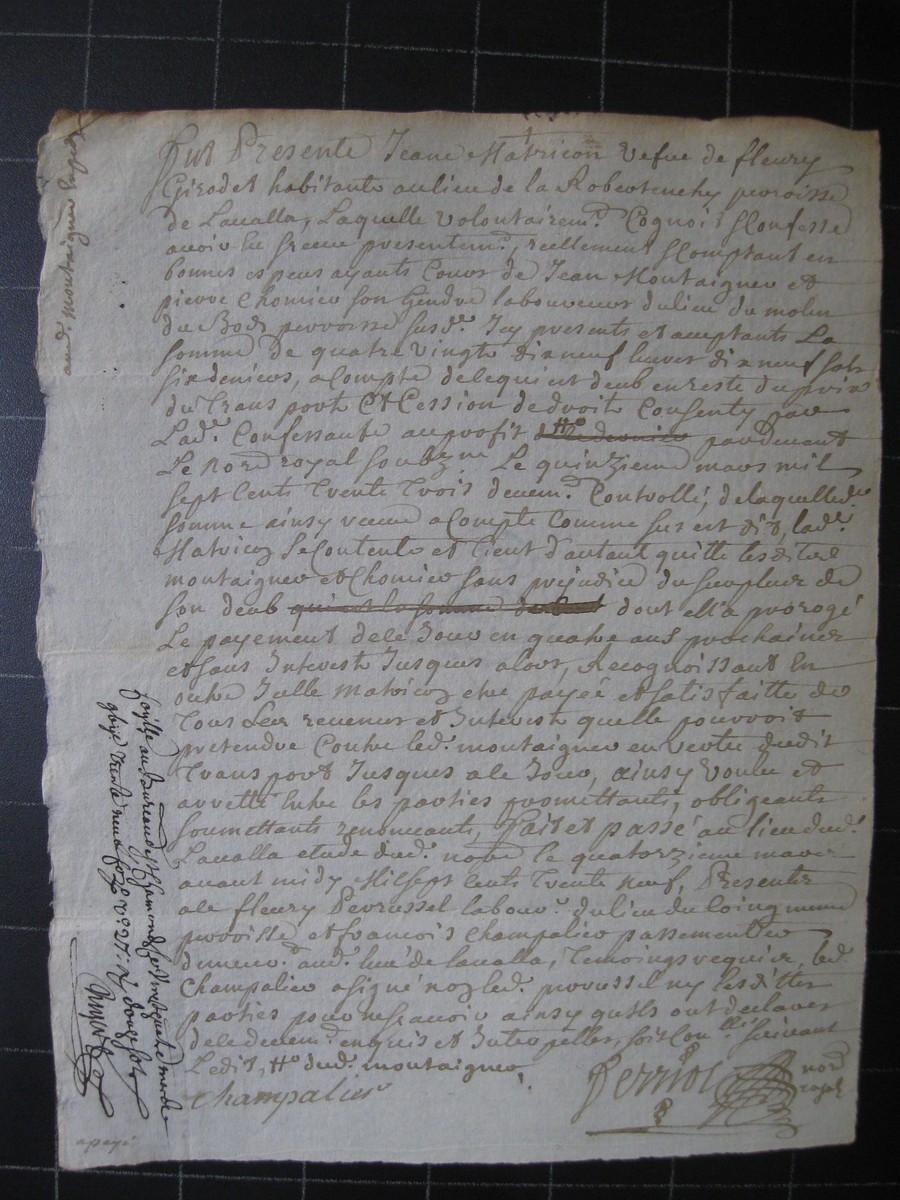 Fut Presente Jeane Matricon vefve de fleury
Girodet habitante au lieu de la Robertenchy parroisse
de Lavalla, Laquelle volontairem.t Cognoit & Confesse
avoir Eu & receu presentem.t, reellement & Comptant en
bonnes espens ayants Cours de Jean Montaigner et
pierre Chomier son Gendre laboureurs du lieu du molin
du Bost parroisse sus d.e Icy presents et acceptants La
somme de quatre vingts dix neuf livres dix neuf sols
six deniers, a Compte de ce qui est deub en reste du prix
du transport Et Cession de droit Consenty par
Lad.e Confessante au profit pardevant
Le no.re royal soubz.ne Le quinzieme mars mil
sept Cents Trente Trois deuem.t Controllé, de laquelle d.e
somme ainsy receue a Compte Comme sus est dit, lad.e
Matricoz se Contente et tient d'autant quitte lesdits
montaigner et Chomier sans prejudice du surplus de
son deub qui est la somme dont ell'a prorogé
Le payement de ce Jour en quatre ans prochaines
et sans Interest Jusques alors, Recognoissant En
outre Icelle Matricoz etre payée et satisfaitte de
Tous Les revenus et Interest quelle pourroit
pretendre Contre led. montaigner en vertu dudit
Transport Jusques a ce Jour, ainsy voulu et
arretté Entre les parties promettants, obligeants
soumettants renonceants, fait et passé au lieu dud.
Lavalla etude dud. no.re le quatorzieme mars
avant midy Mil sept Cents Trente neuf, Presents
a ce fleury Perrussel labour.r du lieu du Coing mesme
parroisse et francois Champalier passementier
demeur.t aud. lieu de lavalla, Temoings requis, led.
Champalier a signé non led. perrussel ny lesdittes
parties pour ne scavoir ainsy quils ont declaré
de ce deuem.t enquis et Interpellés, soit Con.lle suivant
Ledit, dud. montaigner
Champalier
Perrior
nore
royal
aud. montaigner
trente neuf
douze sols
apayé